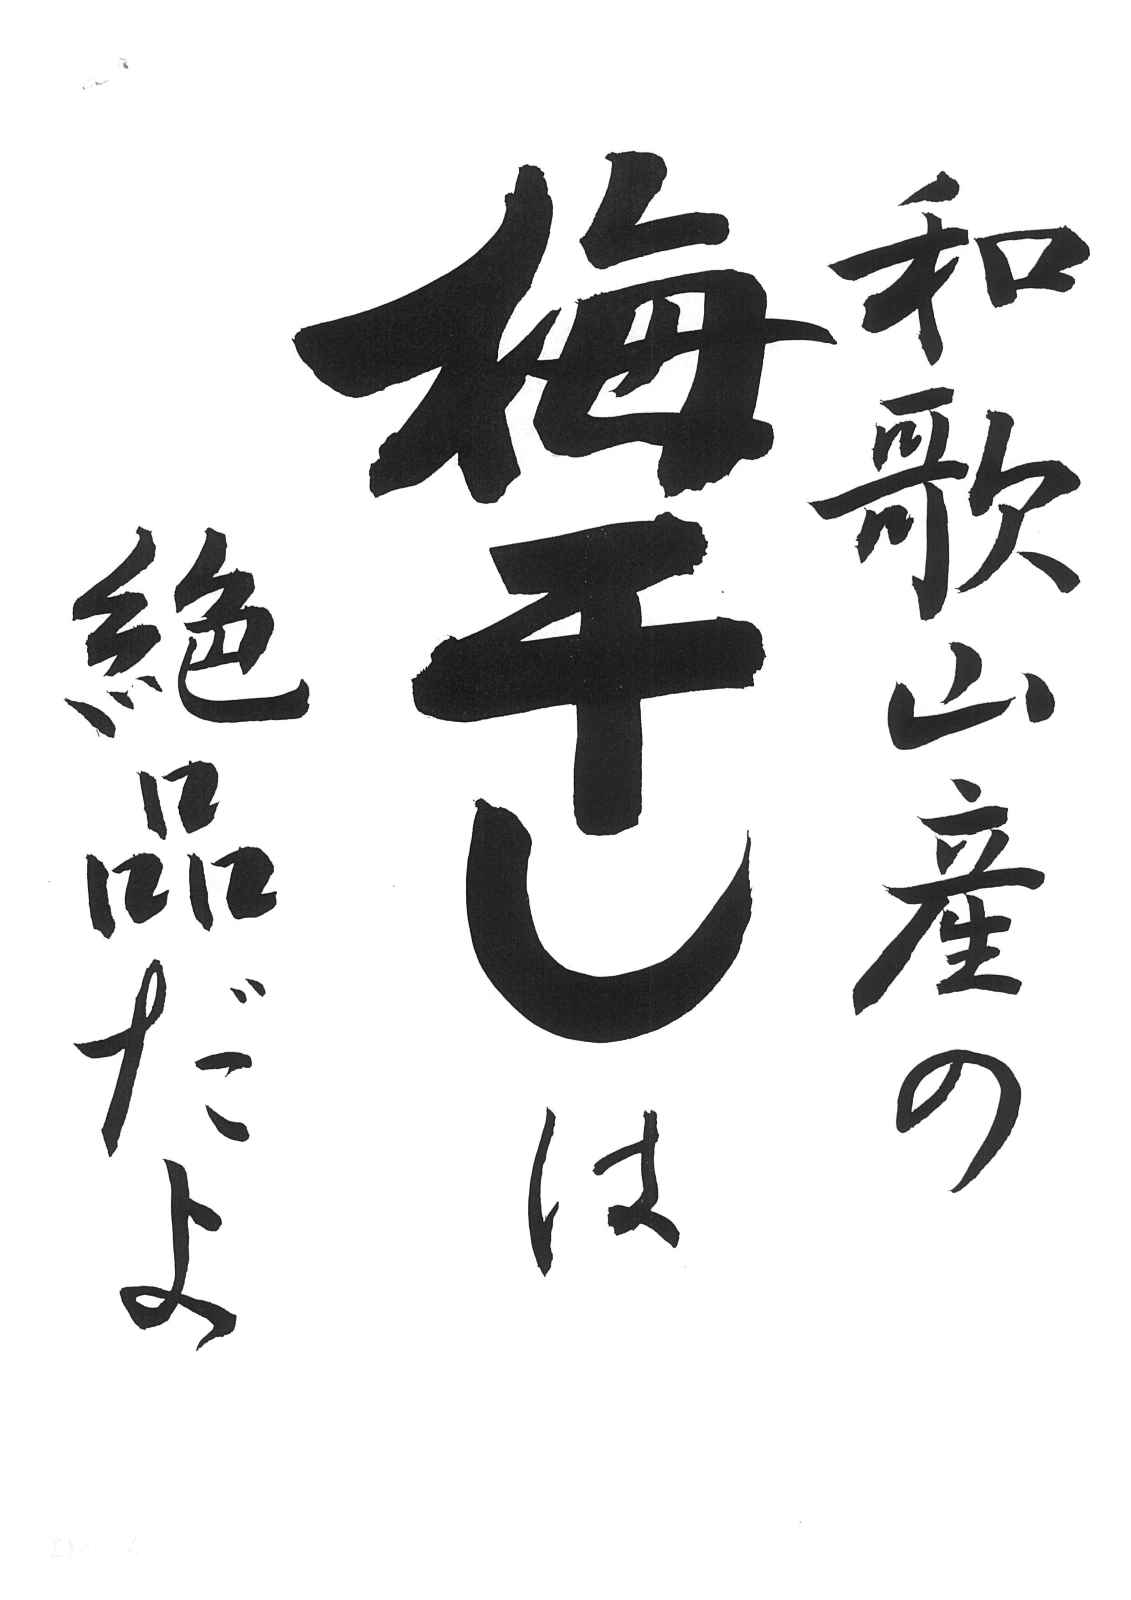 和歌山産の
梅干しは
絶品だよ